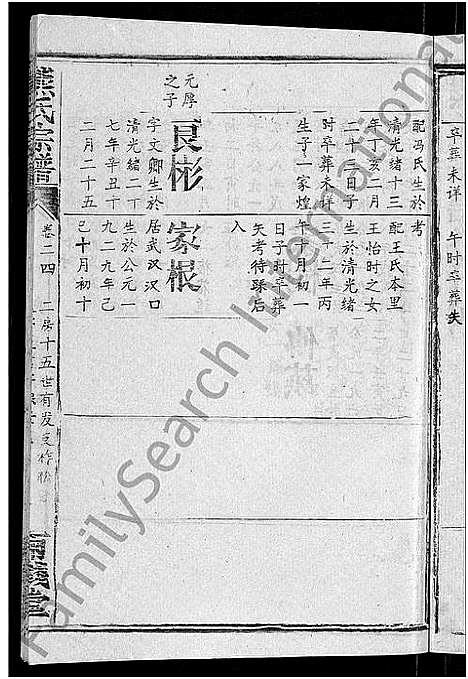 卒葬未详
午时卒葬失
配冯氏生於
清光绪十三
年丁亥二月
二十三日子
时卒葬未详
生子一家煌
元厚
之子
良彬
字文卿生於
清光绪二十
七年辛丑十
二月二十五
考
配王氏本里
王怡时之女
生於清光绪
三十二年丙
午十月初一
日子时卒葬
失考待琢后
入
家根
居武汉汉口
生於公元一
九二九年己
巳十月初十
熊氏宗谱
卷二四
二房十五世有发支
堂
FamilySearch International